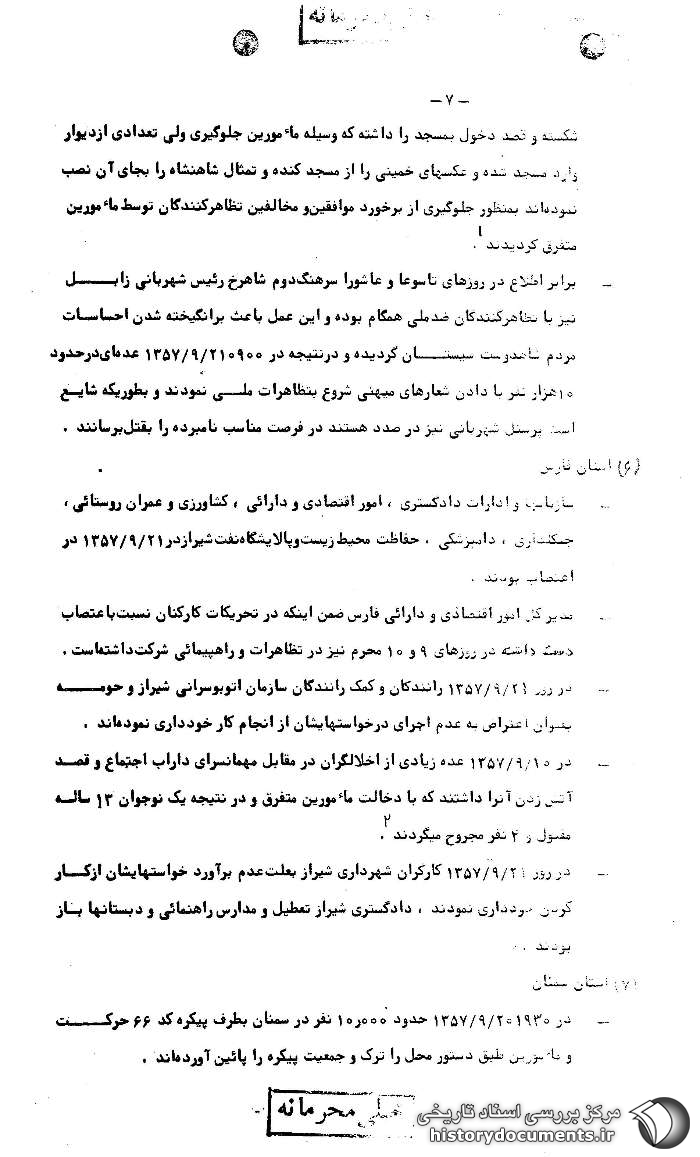 محرمانه
- ۷ -
شکسته و قصد دخول بمسجد را داشته که وسیله مأمورین جلوگیری ولی تعدادی ازدیوار
وارد مسجد شده و عکسهای خمینی را از مسجد کنده و تمثال شاهنشاه را بجای آن نصب
نموده‌اند بمنظور جلوگیری از برخورد موافقین‌و مخالفین تظاهرکنندگان توسط مأمورین
متفرق گردیدند ۱.
- برابر اطلاع در روزهای تاسوعا و عاشورا سرهنگ‌دوم شاهرخ رئیس شهربانی زابـــل
نیز با تظاهرکنندگان ضدملی همگام بوده و این عمل باعث برانگیخته شدن احساسات
مردم شاهدوست سیستـــان گردیده و درنتیجه در ۱۳۵۷/۹/۲۱۰۹۰۰ عده‌ای‌درحدود
۱۰هزار نفر با دادن شعارهای میهنی شروع بتظاهرات ملـــی نمودند و بطوریکه شایــع
است پرسنل شهربانی نیز در صدد هستند در فرصت مناسب نامبرده را بقتل‌برسانند .
(۶) استان فارس
- سازمانها و ادارات دادگستری ، امور اقتصادی و دارائی ، کشاورزی و عمران روستائی ،
جنگلداری ، دامپزشکی ، حفاظت محیط زیست‌وپالایشگاه‌نفت‌شیرازدر۱۳۵۷/۹/۲۱ در
اعتصاب بودند .
- مدیر کل امور اقتصادی و دارائی فارس ضمن اینکه در تحریکات کارکنان نسبت‌با‌عتصاب
دست داشته در روزهای ۹ و ۱۰ محرم نیز در تظاهرات و راهپیمائی شرکت‌داشته‌است .
- در روز ۱۳۵۷/۹/۲۱ رانندگان و کمک رانندگان سازمان اتوبوسرانی شیراز و حومـــه
بعنوان اعتراض به عدم اجرای درخواستهایشان از انجام کار خودداری نموده‌اند .
- در ۱۳۵۷/۹/۱۰ عده زیادی از اخلالگران در مقابل مهمانسرای داراب اجتماع و قصـد
آتش زدن آنرا داشتند که با دخالت مأمورین متفرق و در نتیجه یک نوجوان ۱۳ سالـه
مقتول و ۴ نفر مجروح میگردند ۲.
- در روز ۱۳۵۷/۹/۲۱ کارگران شهرداری شیراز بعلت‌عدم برآورد خواستهایشان ازکــار
کردن خودداری نمودند ، دادگستری شیراز تعطیل و مدارس راهنمائی و دبستانها بـاز
بودند .
(۷) استان سمنان
- در ۱۳۵۷/۹/۲۰۱۹۳۰ حدود ۱۰٫۰۰۰ نفر در سمنان بطرف پیکره کد ۶۶ حرکـــت
و مأمورین طبق دستور محل را ترک و جمعیت پیکره را پائین آورده‌اند .
خیلی محرمانه
مرکز بررسی اسناد تاریخی
historydocuments.ir